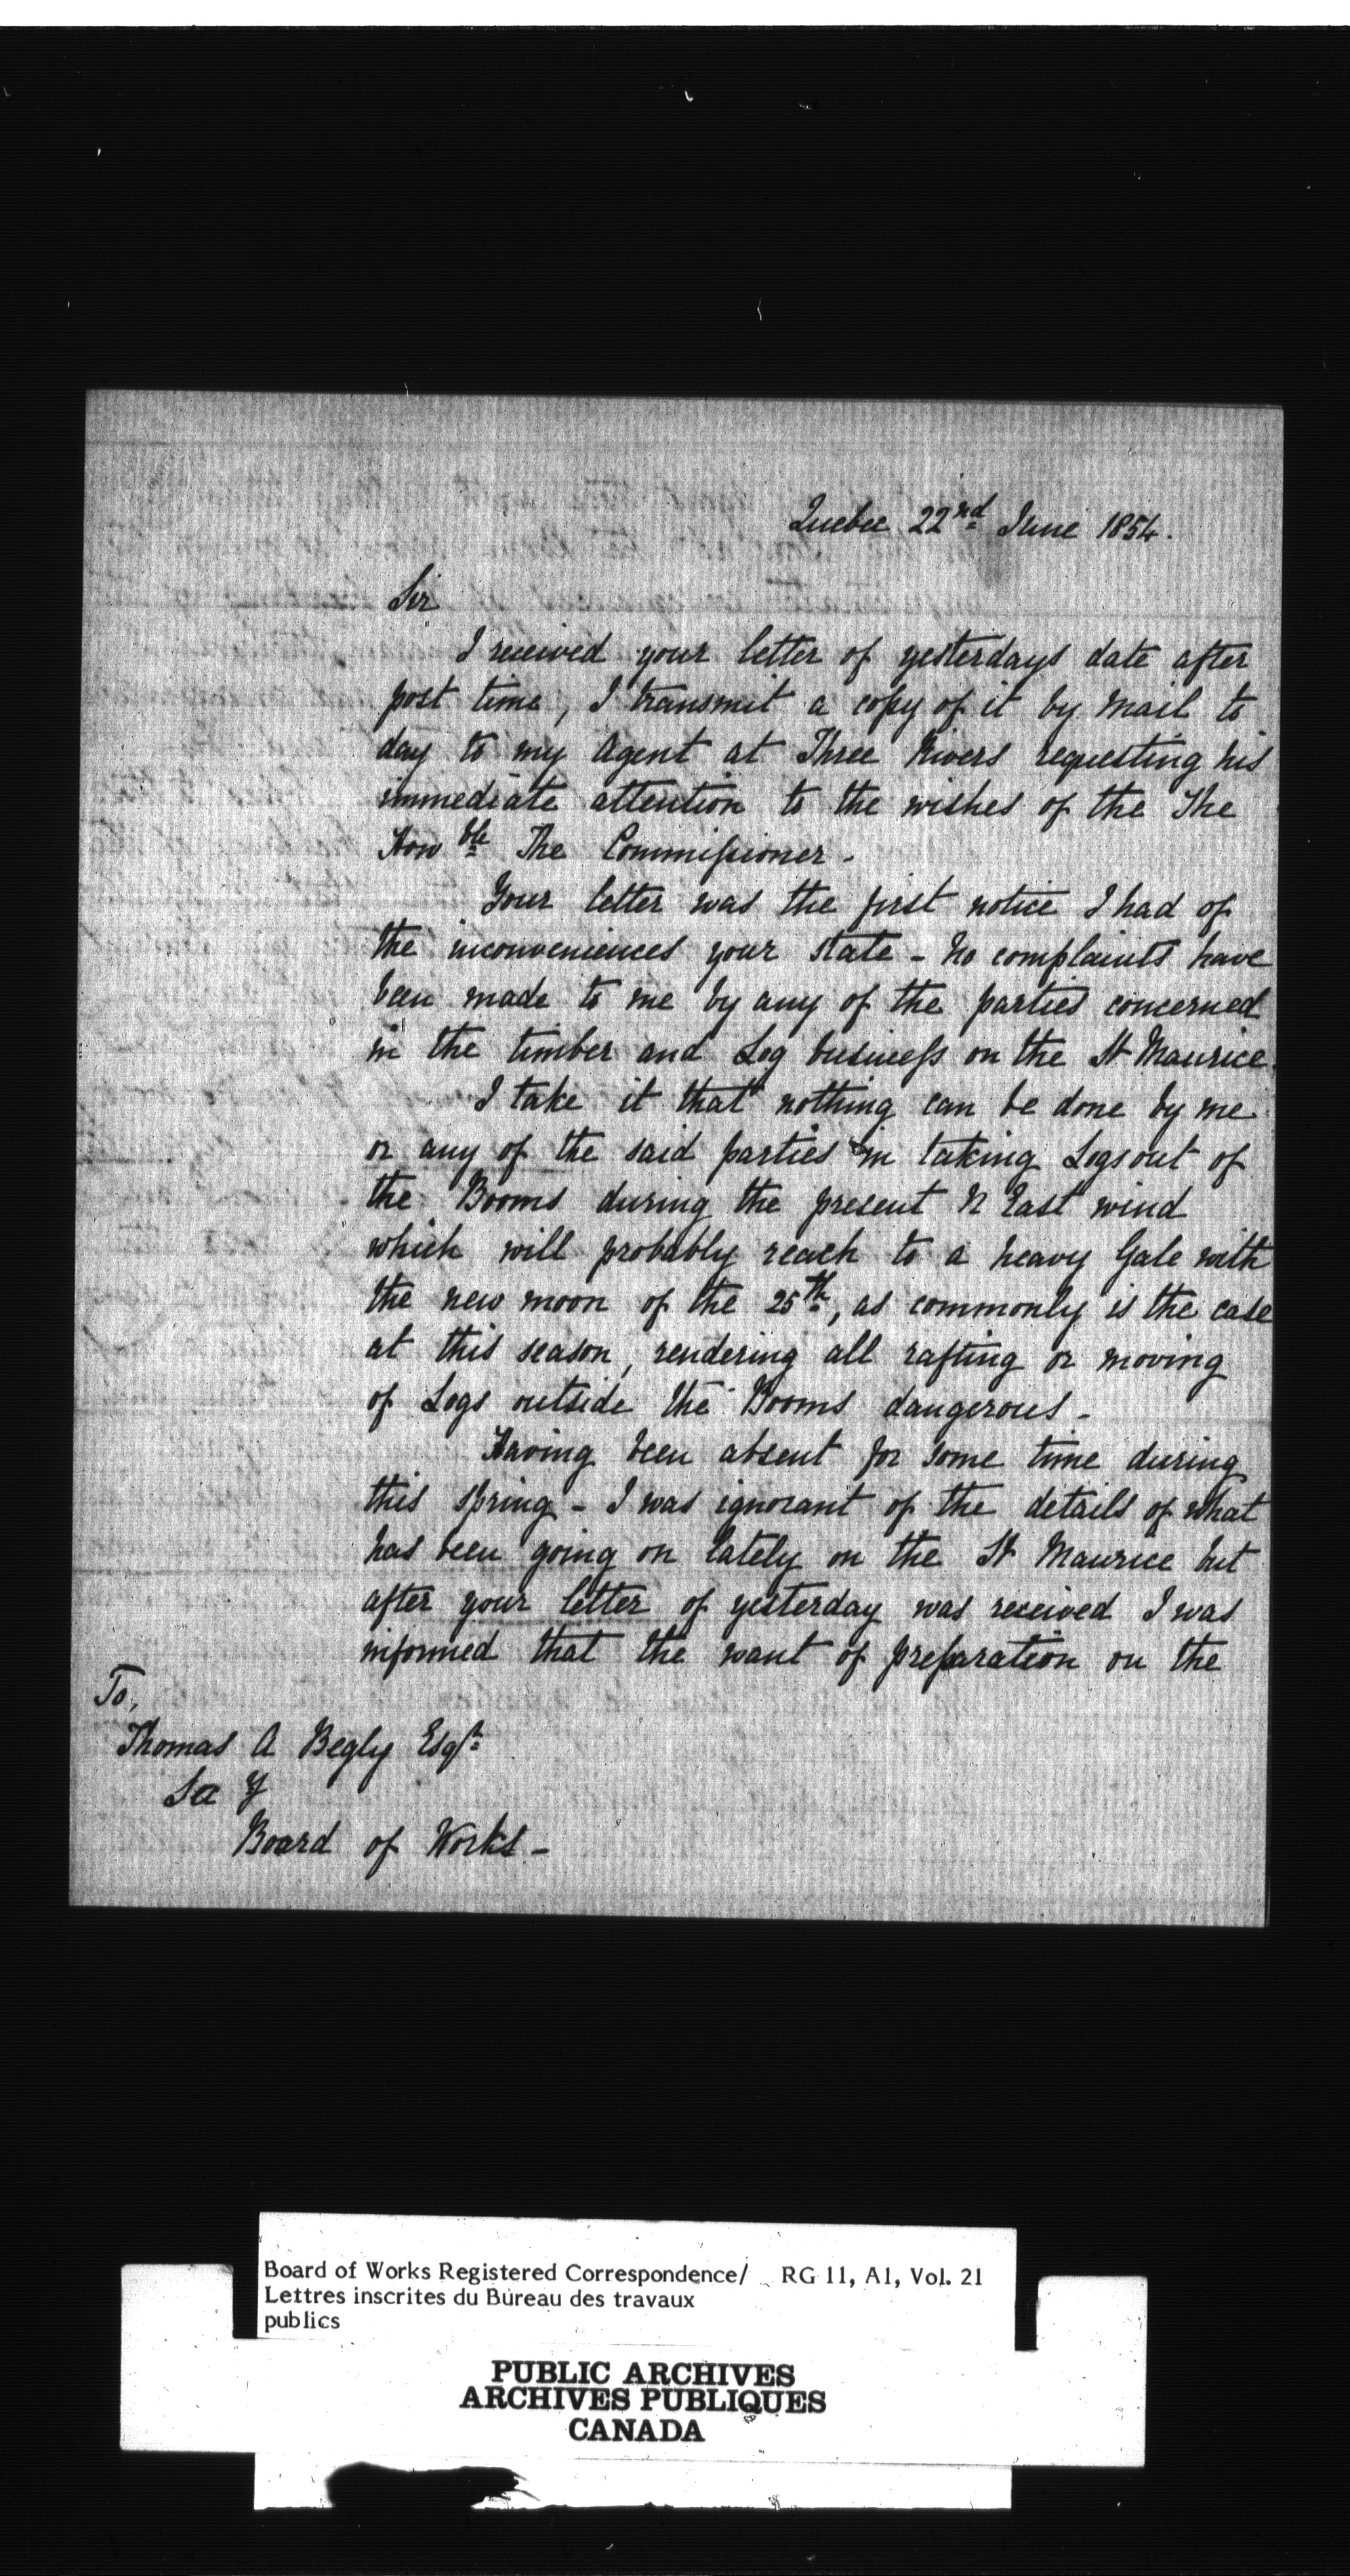 Quebec 22nd June 1854.
Sir
I received your letter of yesterdays date after
post time, I transmit a copy of it by mail to
day to my Agent at Three Rivers requesting his
immediate attention to the wishes of the The
Honble The Commissioner.
Your letter was the first notice I had of
the inconveniences your state - No complaints have
been made to me by any of the parties concerned
in the timber and Log business on the St Maurice.
I take it that nothing can be done by me
or any of the said parties in taking Logs out of
the Booms during the present N East wind
which will probably reach to a heavy Gale with
the new moon of the 25th, as commonly is the case
at this season, rendering all rafting or moving
of Logs outside the Booms dangerous -
Having been absent for some time during
this spring - I was ignorant of the details of what
has been going on lately on the St Maurice but
after your letter of yesterday was received I was
informed that the want of preparation on the
To,
Thomas A Begly Esqr
Secy
Board of Works -
Board of Works Registered Correspondence/ RG 11, A1, Vol. 21
Lettres inscrites du Bureau des travaux
publics
PUBLIC ARCHIVES
ARCHIVES PUBLIQUES
CANADA